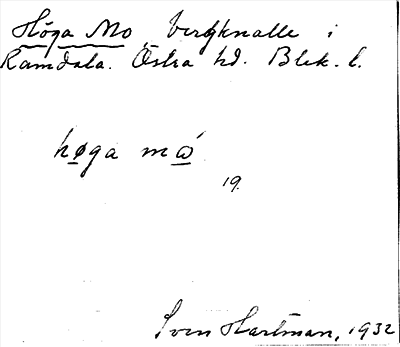 Höga Mo, bergknalle i
Ramdala. Östra hd. Blek. l.
høga mώ
19.
Sven Hartman, 1932